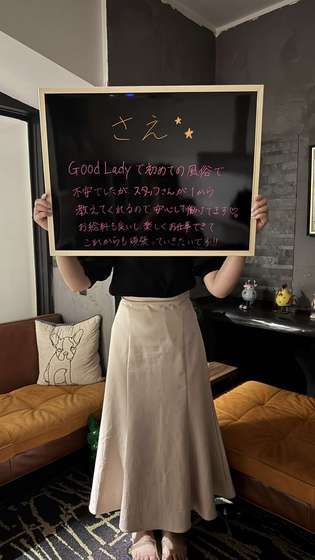 さえ
Good Ladyで初めての風俗で
不安でしたがスタッフさんが1から
教えてくれるので安心して働けてます♡
お給料も良いし楽しくお仕事できて
これからも頑張っていきたいです!!